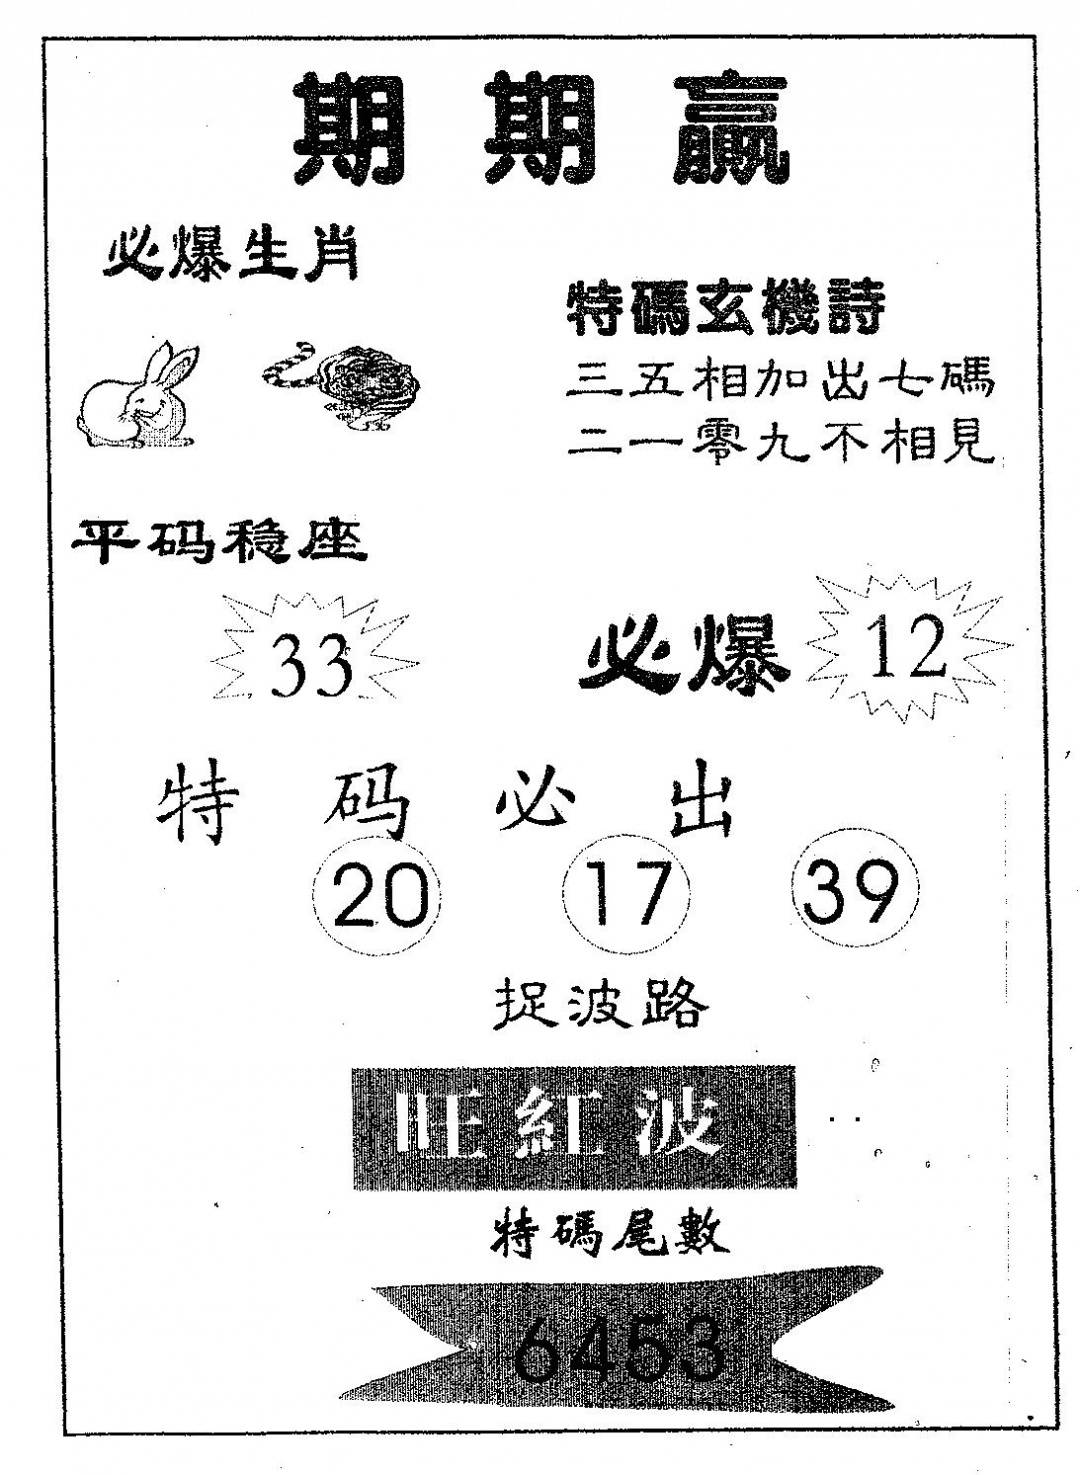 期期贏
必爆生肖
特碼玄機詩
三五相加出七碼
二一零九不相見
平码稳座
33
必爆 12
特码必出
20 17 39
捉波路
旺紅波
特碼尾數
6453